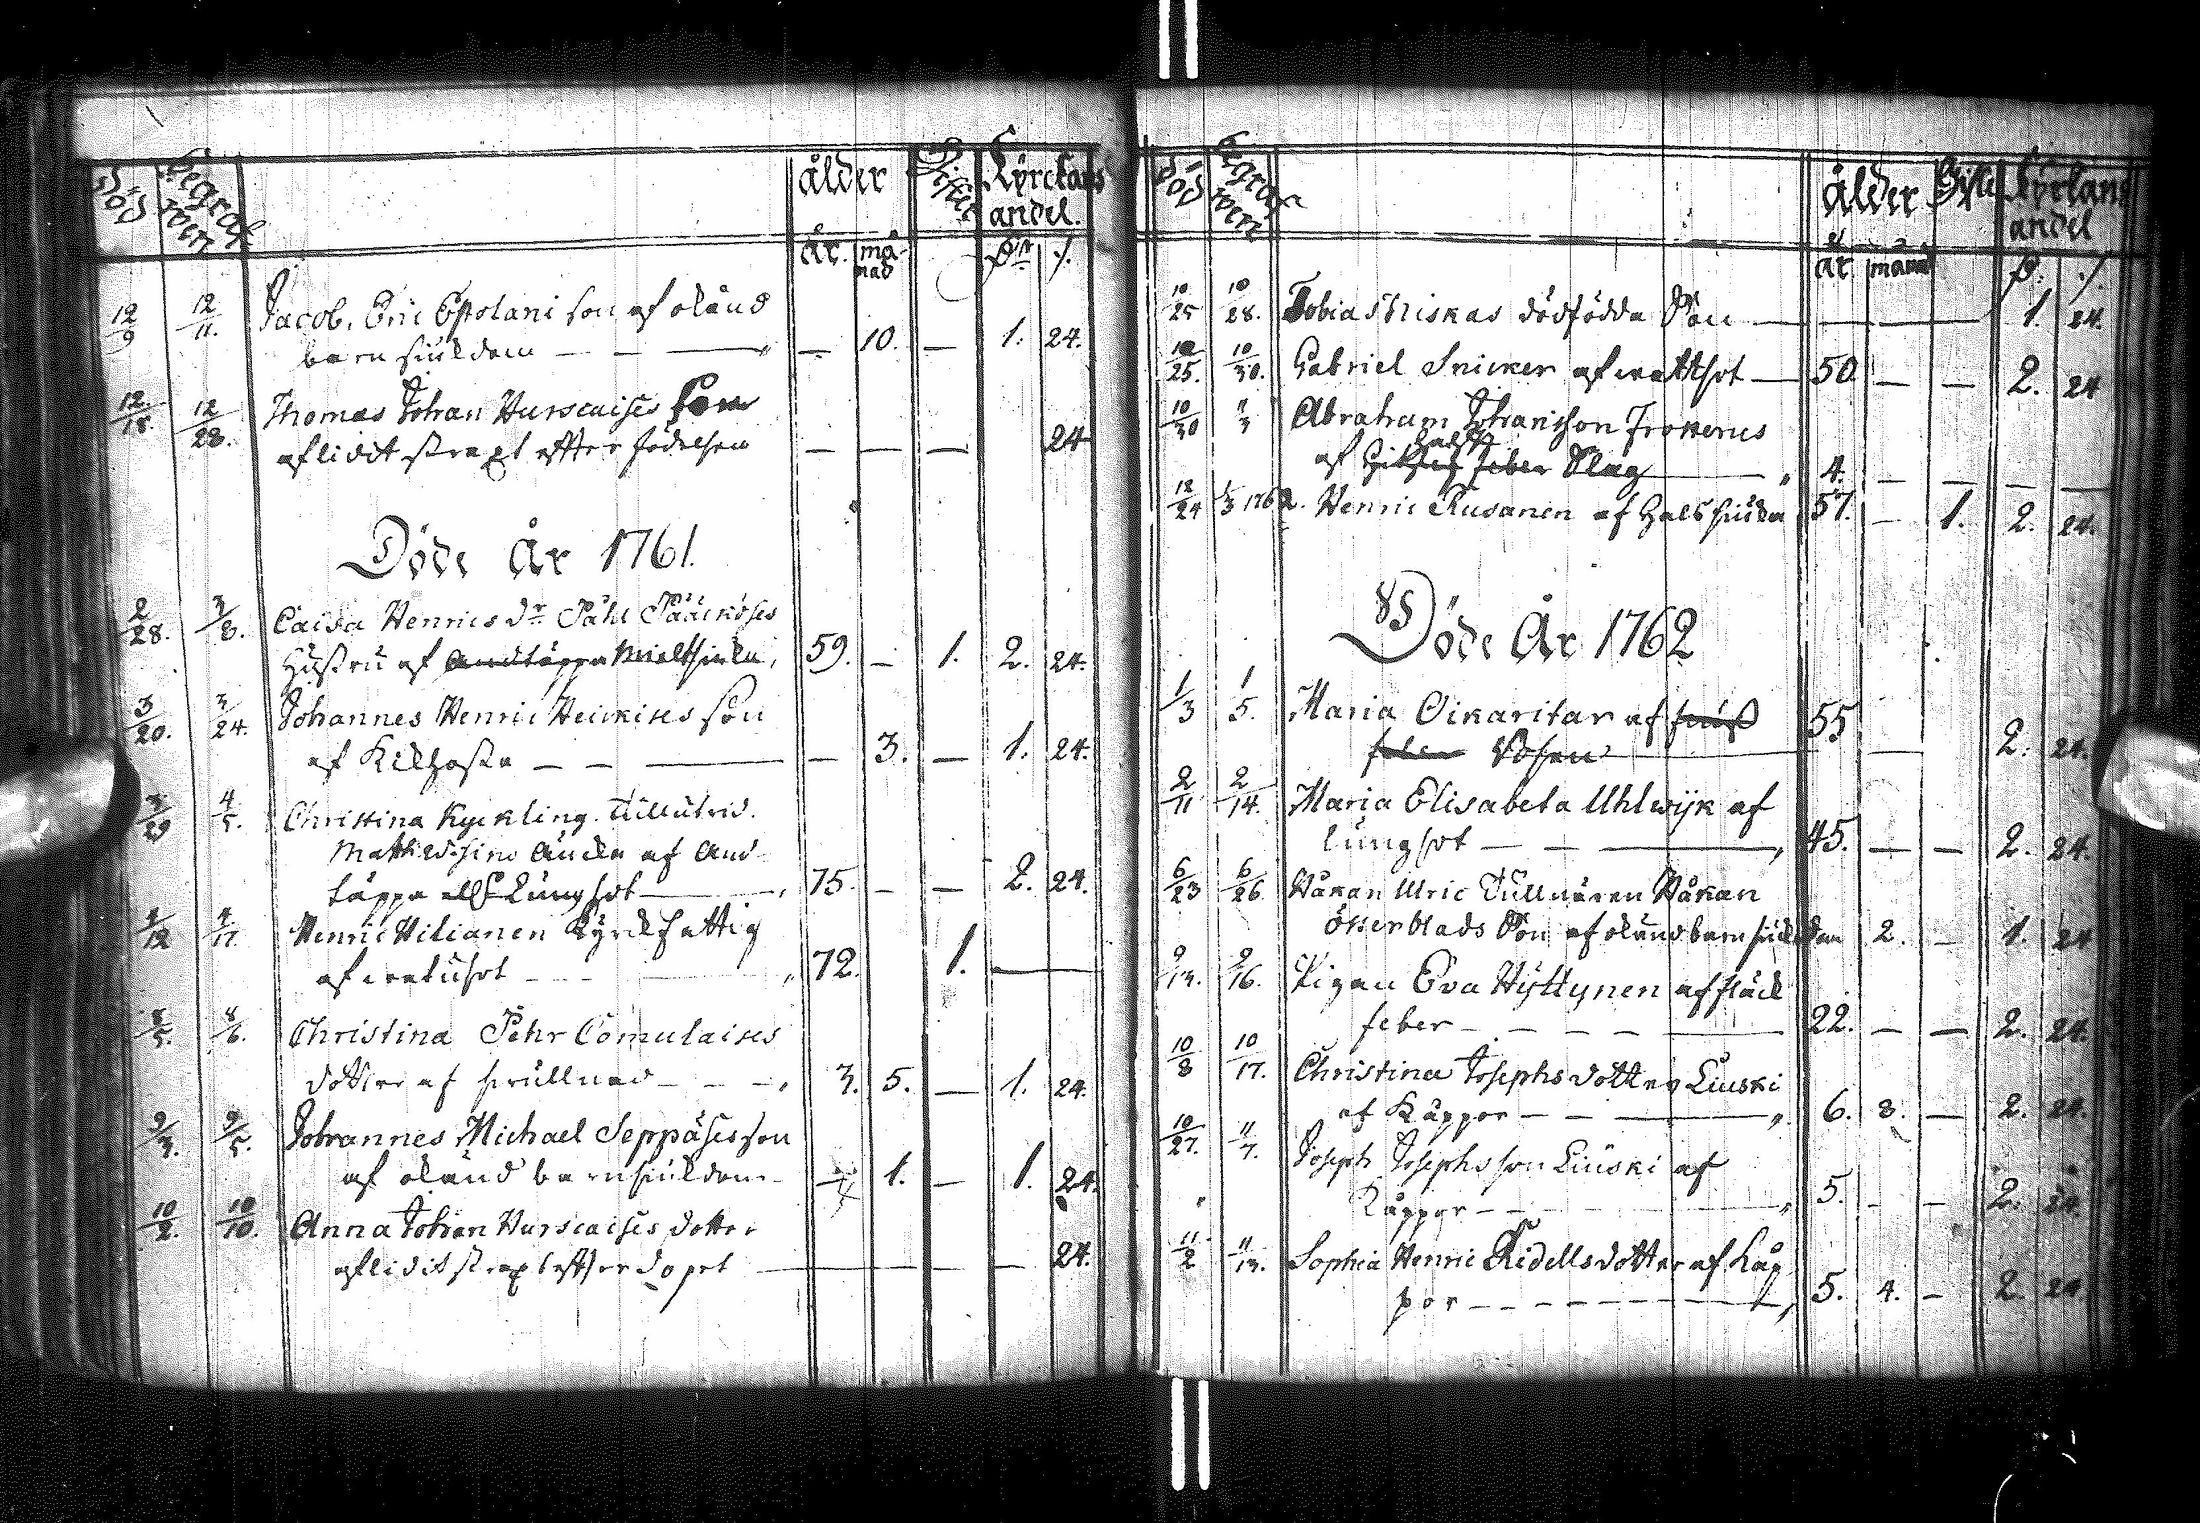 Död Begrafwen ålder Gifter Kyrckans andel.
år. månad
12/9 12/11. Jacob, Eric Epolani son af okänd
barnsiukdom — — — 10. — 1. 24.
12/18. 12/28. Thomas Johan Hurscaises son
aflidit straxt effter födelsen — — — 24
Döde År 1761.
2/28. 3/8. Caisa Henrics dr Påhl Pääcköses
Hustru af 59. — 1. 2. 24.
3/20. 3/24. Johannes Henric Heickises son
af Kikhosta — — — 3. — 1. 24.
3/29 4/5. Christina Kyckling. Tullutrid.
af And
täppa Lungsot 75. — — 2. 24.
4/12 4/17. Henric Hilianen Kyrckfattig
af 72. 1.
8/5. 8/6. Christina Pehr Comulaises
dotter af 3. 5. — 1. 24.
9/3. 9/5. Johannes Michael Seppäses son
af okänd barnsiukdom 1. — 1. 24.
10/2. 10/10. Anna Johan Hurscaises dotter
aflidit straxt effter dopet — — — 24.
Död Begrafwen ålder Gifte Kyrkans andel
år månad
10/25 10/28. Tobias Niskas dödfödda Son — 1. 24.
10/25. 10/30. Gabriel Snicker af 50 — — 2. 24
10/30 11/3 Abraham Johansson Troverus
af Slag 4. — — —
12/24 1/3 1762. Henric Rusanen af Halssiuka 57. — 1. 2. 24.
Döde År 1762
1/3 1/5. Maria Oikaritar af
Rosen 55 — 2. 24.
2/11 2/14. Maria Elisabeta Uhlwijk af
lungsot — — 45. — — 2. 24.
6/23 6/26 Håkan Ulric Tullnären Håkan
Österblads Son af okänd barnsiukdom 2. — 1. 24
9/13. 9/16. Pigan Eva Hyttynen af fläck
feber — — — 22. — — 2. 24.
10/8 10/17. Christina Josephs dotter Liuski
af Kåppor — — 6. 8. — 2. 24.
10/27. 11/7. Joseph Josephsson Liuski af
Kåppor — — 5. — — 2. 24.
11/2 11/13. Sophia Henric Ridells dotter af Kåp
por — — — 5. 4. — 2. 24